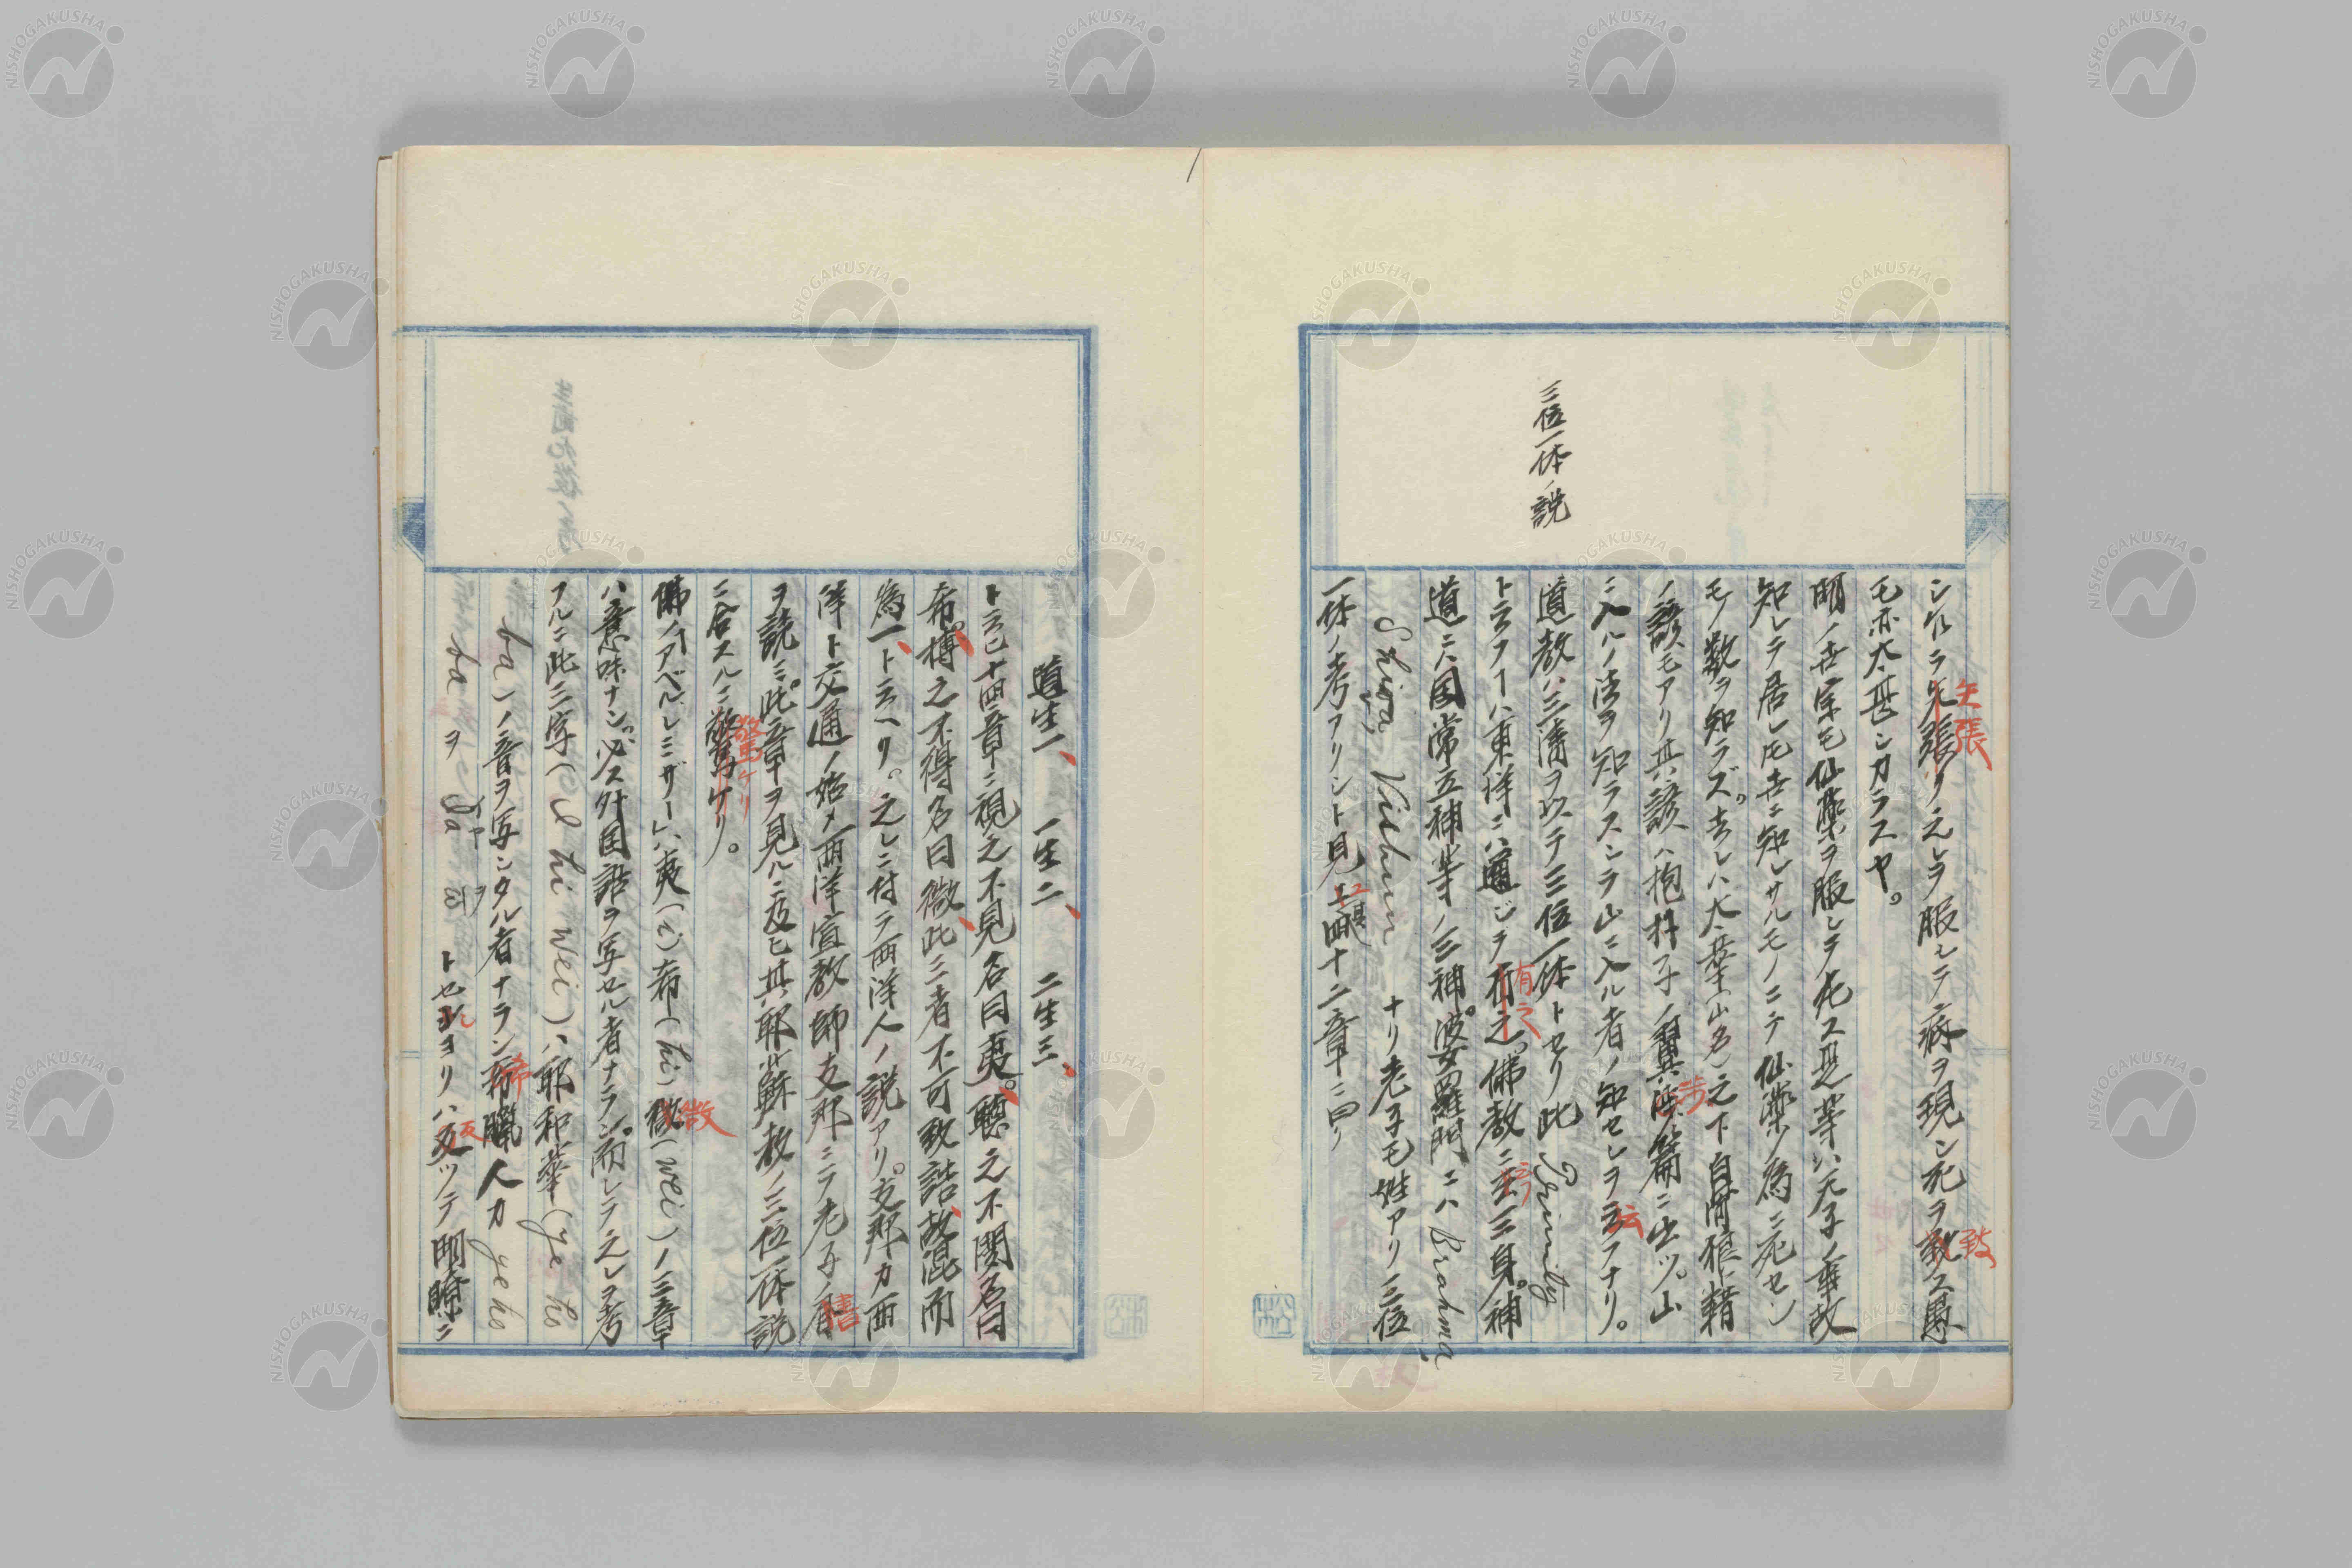 三位一体ノ説
シケレラ矢張リ之レヲ服シテ病ヲ現シ死ヲ致ス愚
矢張
致
モ亦大甚シカラスヤ。
明ノ世宗モ仙薬ヲ服シテ死ス是等ハ天子ノ事故
知レテ居レ𪜈世ニ知レサルモノニテ仙薬ノ為ニ死セシ
モノ数ヲ知ラズ。去レハ大華(山名)之下白骨狼藉
ノ諺モアリ其諺ハ抱朴子ノ登渉篇ニ出ツ。山
渉
ニ入ルノ法ヲ知ラスシテ山ニ入ル者ノ知セシヲ云フナリ。
云
道教ハ三清ヲ以テ三位一体トセリ此 Trinity
ト云フヿハ東洋ニハ通ジテ有之。佛教ニ云三身。神
有之
云
道ニハ国常立神等ノ三神。波女羅門ニハ Brahma,
Shiva, Vishnu ナリ老子モ姓アリ三位
一体ノ考アリシト見ユ四十二章ニ曰ク
道生一、一生二、二生三、
ト云已十四章ニ視之不見名曰夷。聴之不聞名曰
希。搏之不得名曰微、此三者不可致詰、故混而
為一、ト云ヘリ。之レニ付テ西洋人ノ説アリ。支那カ西
洋ト交通ノ始メ西洋宣教師支那ニテ老子ノ書
書
ヲ読ミ。此章ヲ見ルニ及ヒ其耶蘇教ノ三位一体説
ニ合スルニ驚ケリ。
驚ケリ
佛ノ「アベルレミザー」ハ夷(i)希(hi)微(wei)ノ三章
微
ハ意味ナシ。必ス外国語ヲ写セル者ナラン。而シテ之レヲ考
フルニ此三字(I hi wei)ハ耶和華(ye ho
ba)ノ音ヲ写シタル者ナラン希臘人カ yeho
希
ba ヲ Ia ω トセルヨリハ反ツテ明瞭ニ
イヤ ヲ
反